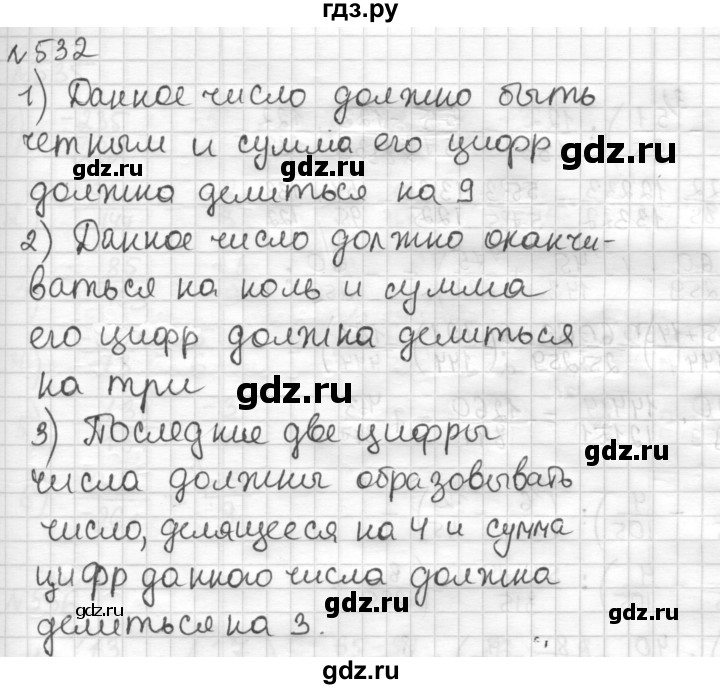 гдз.ру
№532
1) Данное число должно быть
четным и сумма его цифр
gdz.ru
gdz.ru
gdz.ru
должна делиться на 9
2) Данное число должно оканчи-
gdz.ru
gdz.ru
ваться на ноль и сумма
его цифр должна делиться
на три
gdz.ru
gdz.ru
3) Последние две цифры
gdz.ru
числа должны образовывать
число, делящееся на 4 и сумма
gdz.ru
цифр данного числа должна
gdz.ru
gdz.ru
gdz.ru
делиться на 3.
gdz.ru